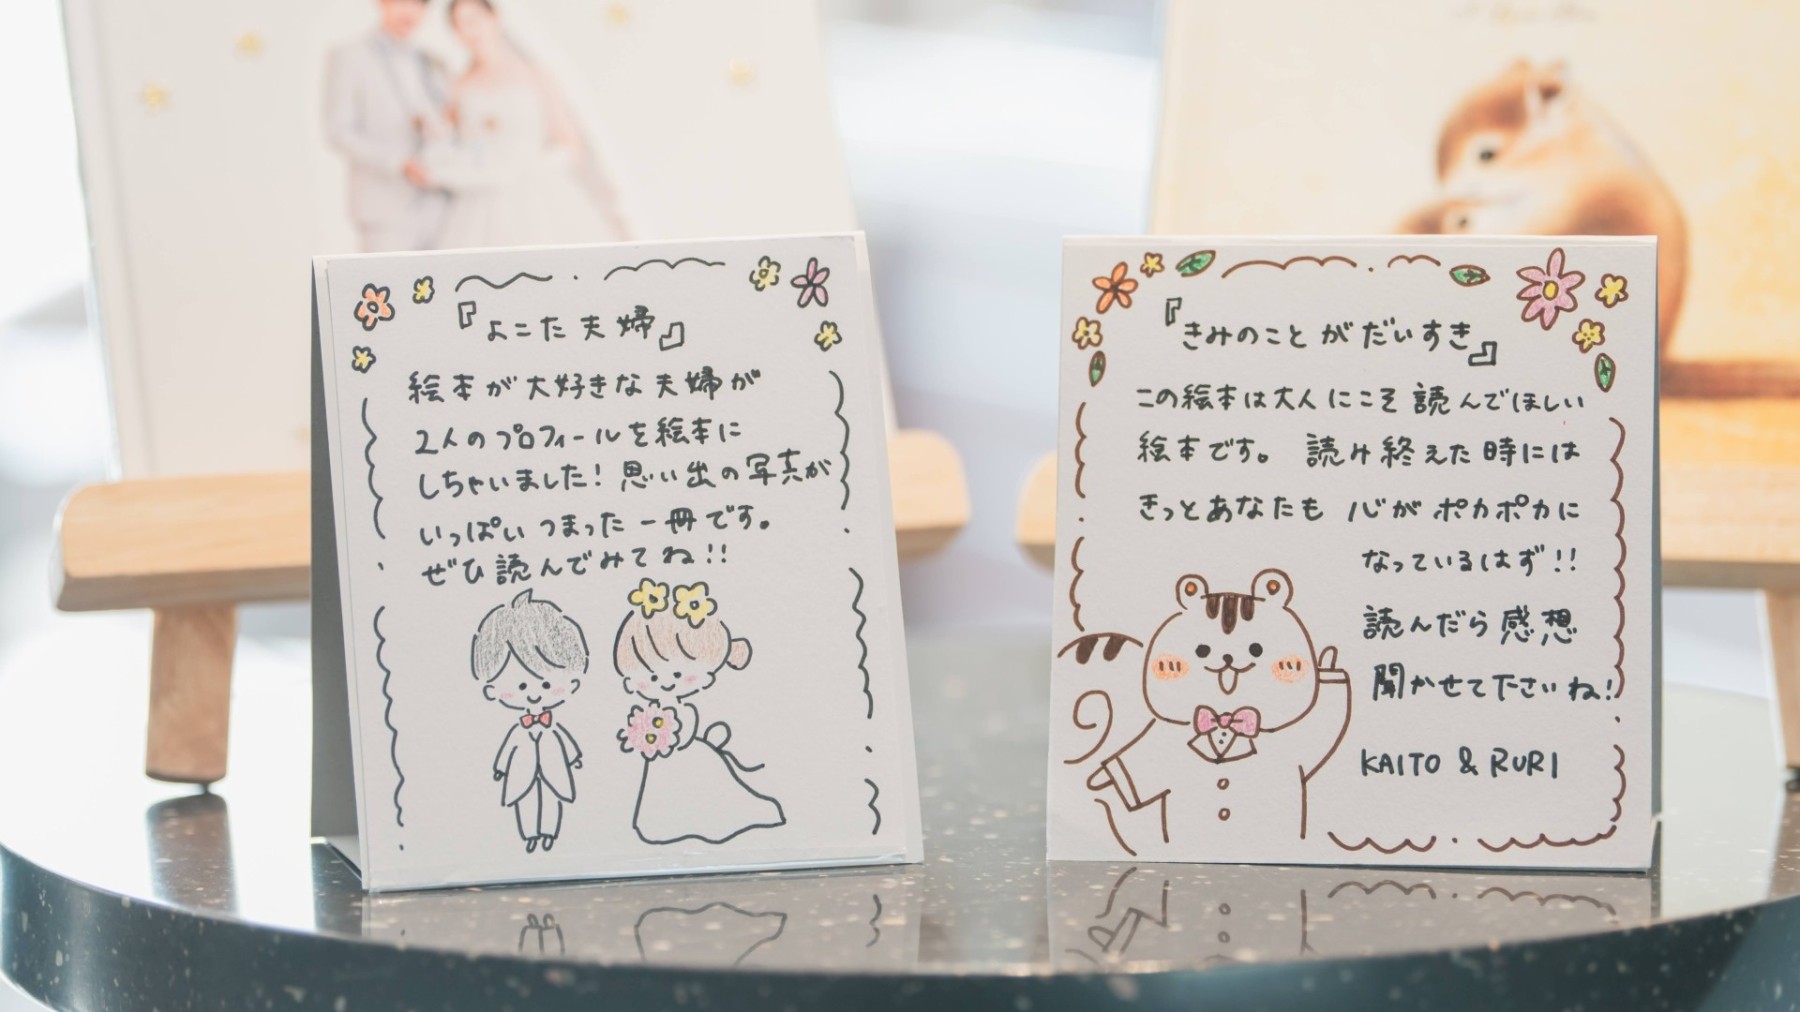 『よこた夫婦』
絵本が大好きな夫婦が
2人のプロフィールを絵本に
しちゃいました!思い出の写真が
いっぱいつまった一冊です。
ぜひ読んでみてね!!
『きみのことがだいすき』
この絵本は大人にこそ読んでほしい
絵本です。読み終えた時には
きっとあなたも心がポカポカに
なっているはず!!
読んだら感想
聞かせて下さいね!
KAITO & RURI